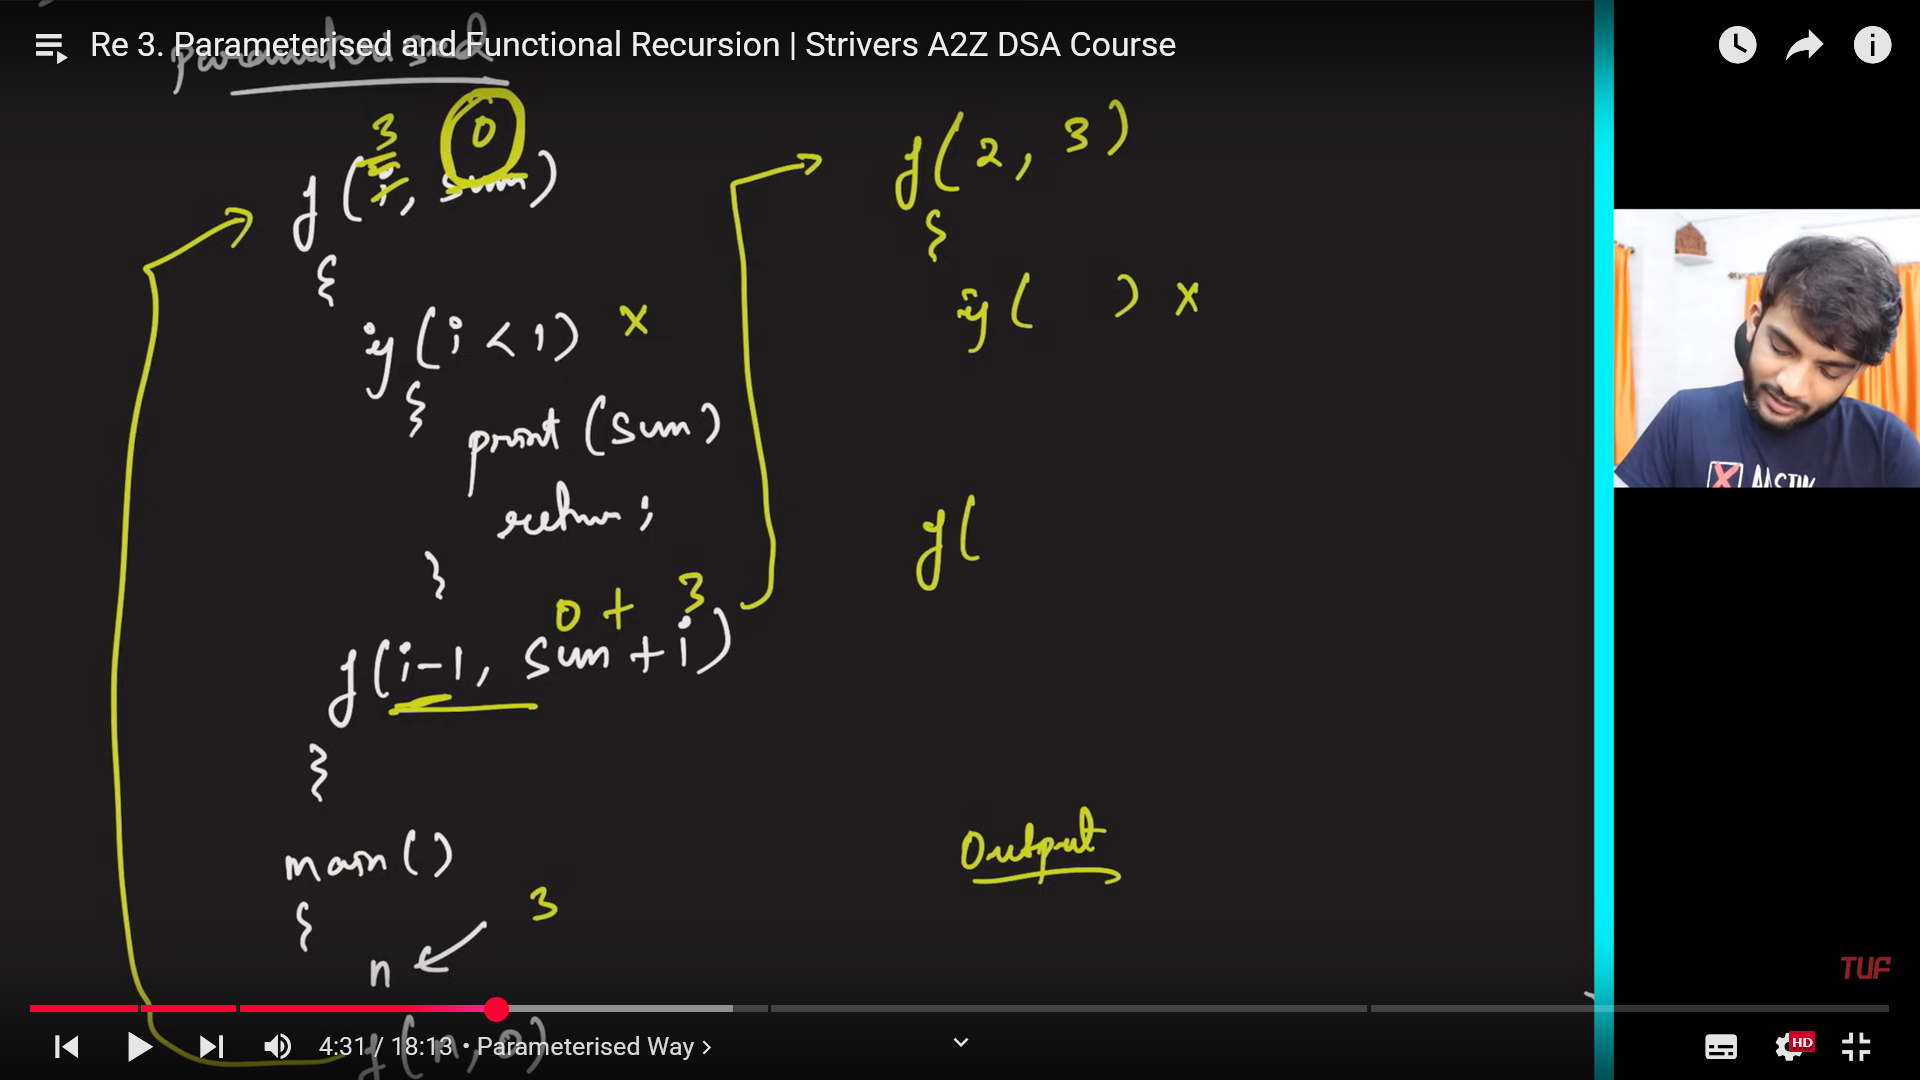 Re 3. Parameterised and Functional Recursion | Strivers A2Z DSA Course
Parameterised
3 0
f(i, sum)
{
if(i < 1) x
{
print(sum)
return;
}
0 + 3
f(i-1, sum+i)
}
main()
{
3
n
f(n, 0)
f(2, 3)
{
if( ) x
f(
Output
TUF
4:31 / 18:13 • Parameterised Way ›
HD